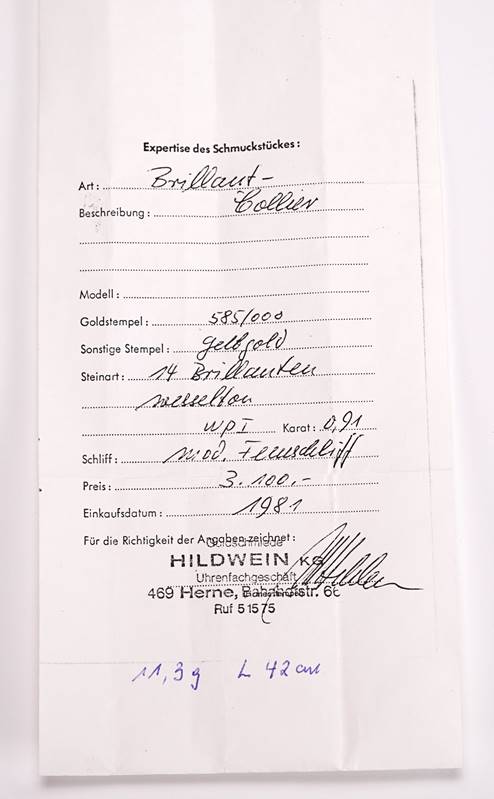 Expertise des Schmuckstückes:
Art: Brillant-
Beschreibung: Collier
Modell:
Goldstempel: 585/000
Sonstige Stempel: Gelbgold
Steinart: 14 Brillanten
wesselton
WPI Karat: 0,91
Schliff: mod. Feinschliff
Preis: 3.100,-
Einkaufsdatum: 1981
Für die Richtigkeit der Angaben zeichnet:
Goldschmiede
HILDWEIN KG
Uhrenfachgeschäft
469 Herne, Bahnhofstr. 66
Ruf 5 15 75
11,3g L 42cm